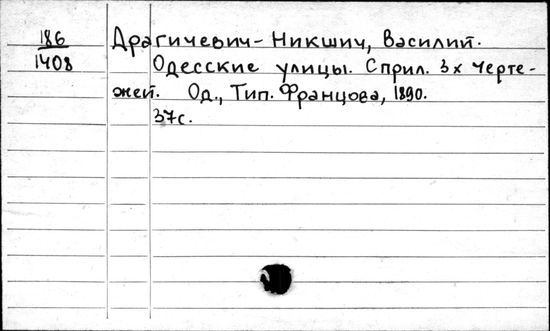 186
1408
Драгичевич-Никшич, Василий.
Одесские улицы. С прил. 3х черте-
жей. Од., Тип. Францова, 1890.
37с.